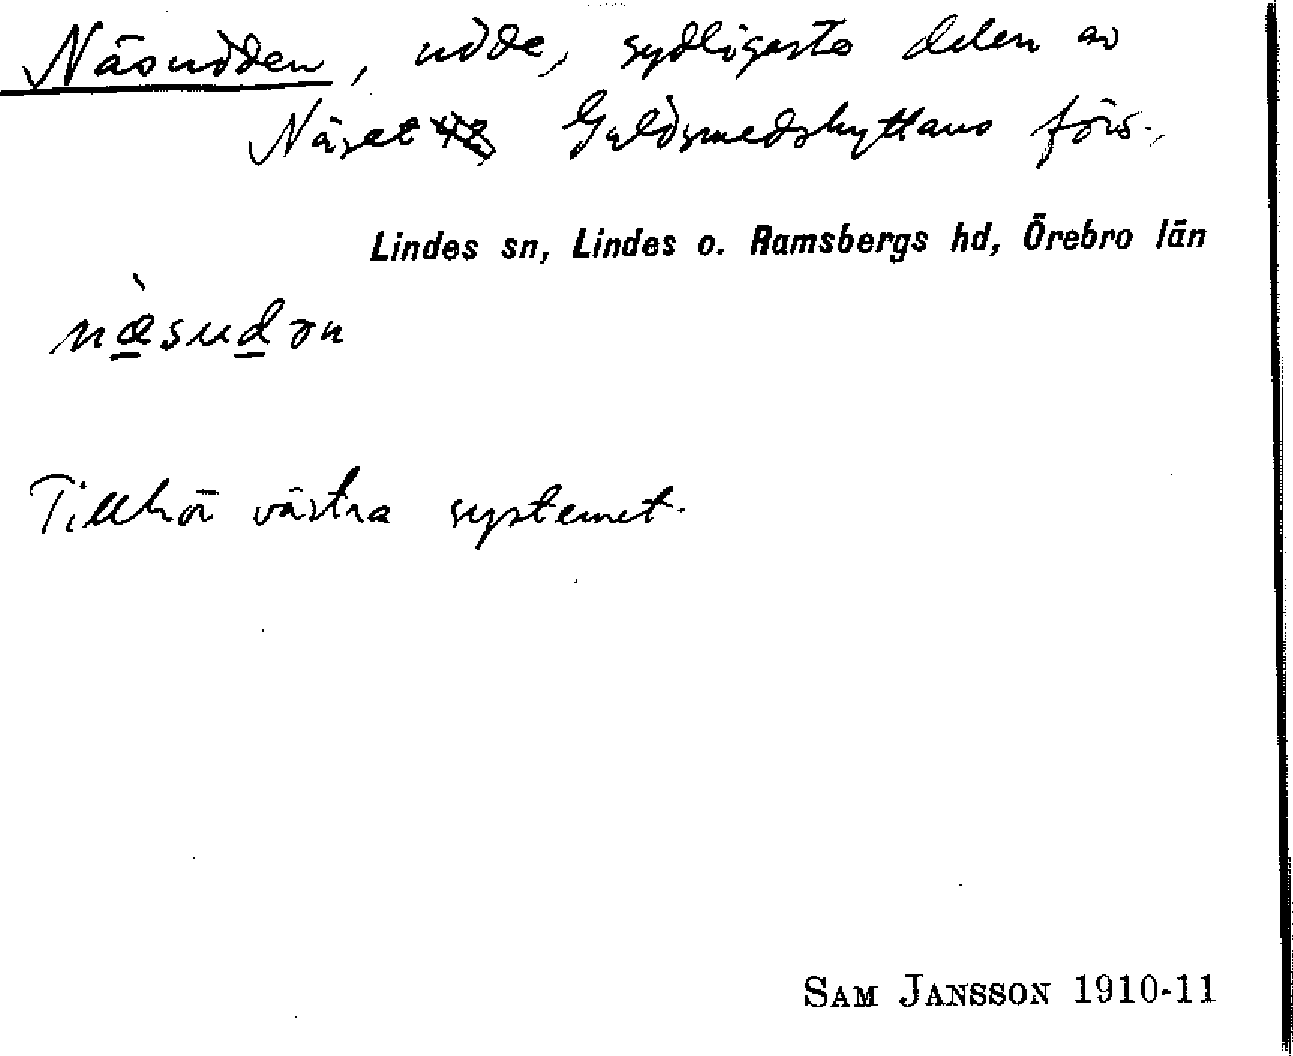 Näsudden, udde, sydligaste delen av
Näset Guldsmedshyttans förs.,
Lindes sn, Lindes o. Ramsbergs hd, Örebro län
næ̀sudən
Tillhör västra systemet.
SAM JANSSON 1910-11